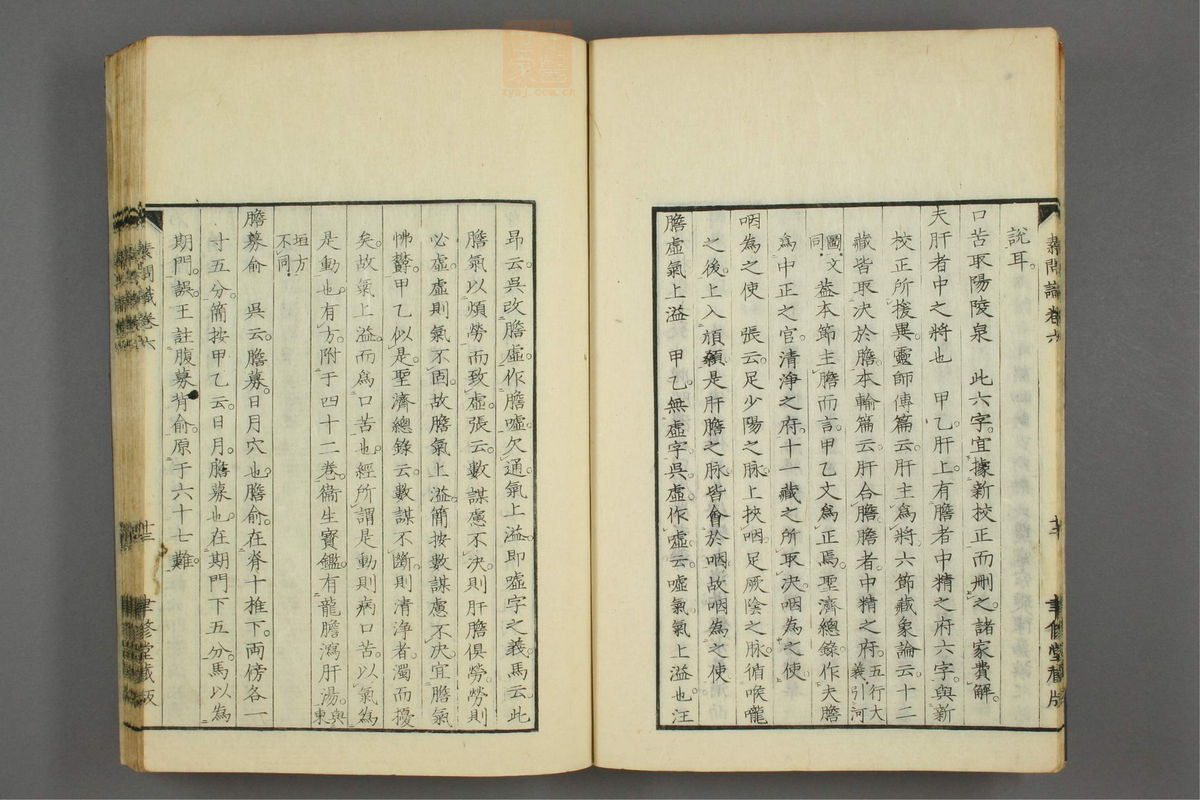 素問識卷六
聿修堂藏版
說耳
口苦取陽陵泉　此六字宜據新校正而刪之諸家費解
夫肝者中之將也　甲乙肝上有膽者中精之府六字與新
校正所援異靈師傳篇云肝主為將六節藏象論云十二
藏皆取決於膽本輸篇云肝合膽膽者中精之府五行大義引河
圖文同蓋本節主膽而言甲乙文為正焉聖濟總錄作夫膽
為中正之官清淨之府十一藏之所取決咽為之使
咽為之使　張云足少陽之脉上挾咽足厥陰之脉循喉嚨
之後上入頏顙是肝膽之脉皆會於咽故咽為之使
膽虛氣上溢　甲乙無虛字吳虛作噓云噓氣氣上溢也汪
昂云吳改膽虛作膽噓欠通氣上溢即噓字之義馬云此
膽氣以煩勞而致虛張云數謀慮不決則肝膽俱勞勞則
必虛虛則氣不固故膽氣上溢簡按數謀慮不決宜膽氣
怫鬱甲乙似是聖濟總錄云數謀不斷則清淨者濁而擾
矣故氣上溢而為口苦也經所謂是動則病口苦以氣為
是動也有方附于四十二卷衞生寶鑑有龍膽瀉肝湯與東
垣方不同
膽募俞　吳云膽募日月穴也膽俞在脊十椎下兩傍各一
寸五分簡按甲乙云日月膽募也在期門下五分馬以為
期門誤王註腹募背俞原于六十七難
素問識卷六
聿修堂藏版